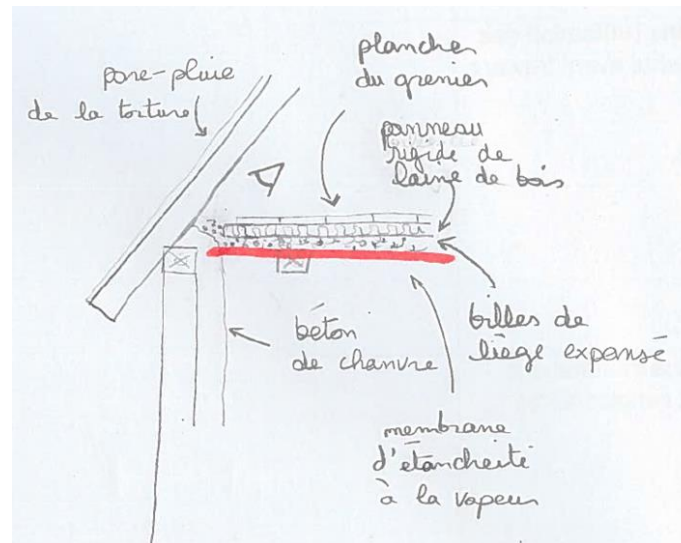 pare-pluie
de la toiture
plancher
du grenier
panneau
rigide de
laine de bois
béton
de chanvre
billes de
liège expansé
membrane
d'étanchéité
à la vapeur